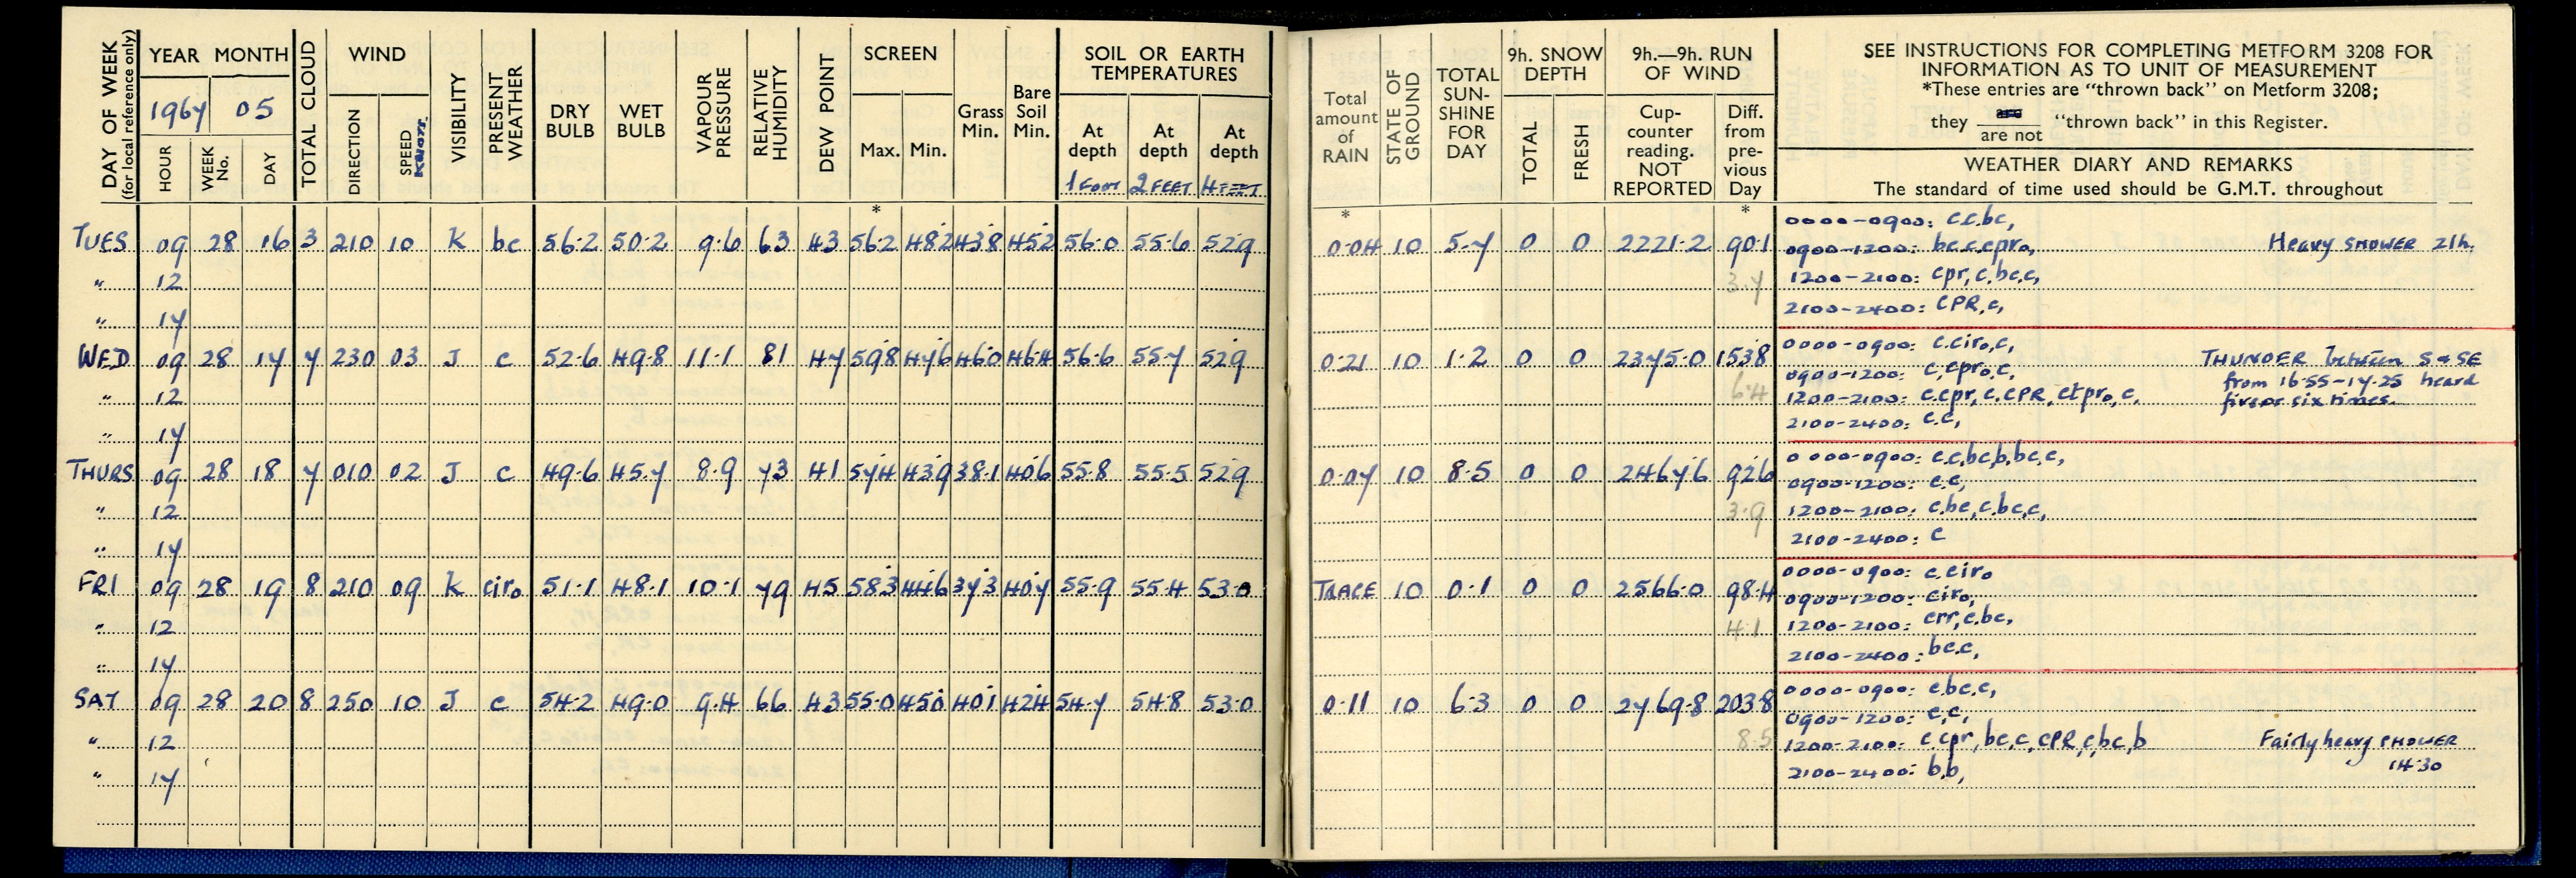 DAY OF WEEK (for local reference only)
YEAR MONTH
1967 05
HOUR
WEEK No.
DAY
TOTAL CLOUD
WIND
DIRECTION
SPEED KNOTS
VISIBILITY
PRESENT WEATHER
DRY BULB
WET BULB
VAPOUR PRESSURE
RELATIVE HUMIDITY
DEW POINT
SCREEN
Max. Min.
Grass Min.
Bare Soil Min.
SOIL OR EARTH TEMPERATURES
At depth 1 FOOT
At depth 2 FEET
At depth 4 FEET
Total amount of RAIN
STATE OF GROUND
TOTAL SUN-SHINE FOR DAY
9h. SNOW DEPTH
TOTAL
FRESH
9h.—9h. RUN OF WIND
Cup-counter reading. NOT REPORTED
Diff. from pre-vious Day
SEE INSTRUCTIONS FOR COMPLETING METFORM 3208 FOR
INFORMATION AS TO UNIT OF MEASUREMENT
*These entries are "thrown back" on Metform 3208;
they are / are not "thrown back" in this Register.
WEATHER DIARY AND REMARKS
The standard of time used should be G.M.T. throughout
* * *
TUES 09 28 16 3 210 10 K bc 56.2 50.2 9.6 63 43 56.2 48.2 43.8 45.2 56.0 55.6 52.9 0.04 10 5.7 0 0 2221.2 90.1
0000-0900: c.c.bc,
0900-1200: bc.c.cpro, Heavy SHOWER 21h.
" 12 3.7
1200-2100: cpr,c,bc.c,
" 17
2100-2400: CPR,c,
WED 09 28 17 7 230 03 J c 52.6 49.8 11.1 81 47 59.8 47.6 46.0 46.4 56.6 55.7 52.9 0.21 10 1.2 0 0 2375.0 153.8
0000-0900: c.ciro,c, THUNDER between S & SE
0900-1200: c,cpro,c, from 16.55-17.25 heard
" 12 6.4
1200-2100: c.cpr,c.CPR,ctpro,c, five or six times.
" 17
2100-2400: c.c,
THURS 09 28 18 7 010 02 J c 49.6 45.7 8.9 73 41 57.4 43.9 38.1 40.6 55.8 55.5 52.9 0.07 10 8.5 0 0 2467.6 92.6
0000-0900: c.c,bc,b,bc,c,
0900-1200: c.c,
" 12 3.9
1200-2100: c.bc,c.bc,c,
" 17
2100-2400: c
FRI 09 28 19 8 210 09 K ciro 51.1 48.1 10.1 79 45 58.3 44.6 37.3 40.7 55.9 55.4 53.0 TRACE 10 0.1 0 0 2566.0 98.4
0000-0900: c.ciro
0900-1200: ciro,
" 12 4.1
1200-2100: crr,c.bc,
" 17
2100-2400: bc.c,
SAT 09 28 20 8 250 10 J c 54.2 49.0 9.4 66 43 55.0 45.0 40.1 42.4 54.7 54.8 53.0 0.11 10 6.3 0 0 2769.8 203.8
0000-0900: c.bc.c,
0900-1200: c,c,
" 12 8.5
1200-2100: c.cpr,bc,c,CPR,c,bc,b Fairly heavy SHOWER
" 17
2100-2400: b,b, 14.30